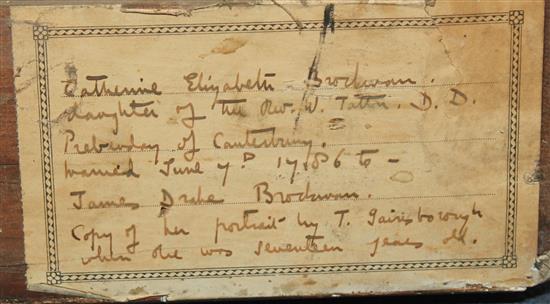 Catherine Elizabeth Brockman.
daughter of the Rev. W. Tatton. D. D.
Prebenday of Canterbury.
married June 7D 1786 to -
James Drake Brockman.
Copy of her portrait by T. Gainsborough
when she was seventeen years old.